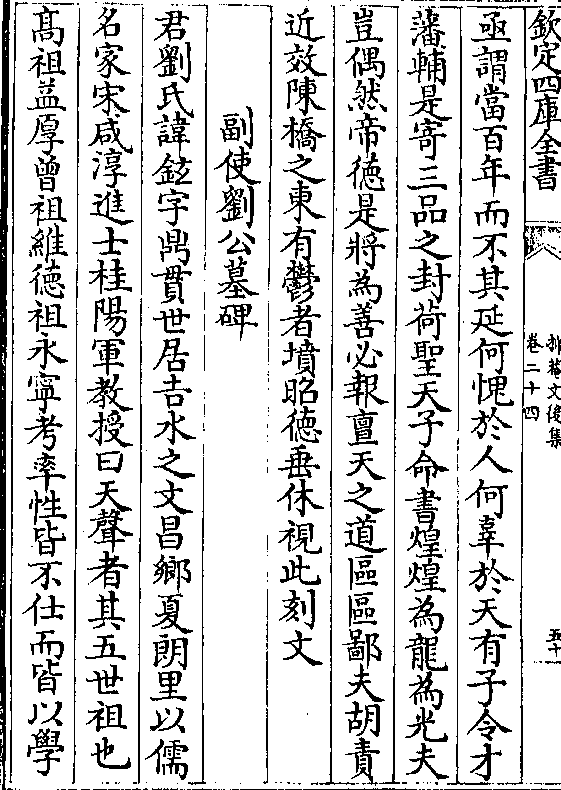 欽定四庫全書
抑菴文後集
卷二十四
五十
亟謂當百年而不其延何愧於人何辜於天有子令才
藩輔是寄三品之封荷聖天子命書煌煌為龍為光夫
豈偶然帝徳是將為善必報亶天之道區區鄙夫胡責
近效陳橋之東有鬱者墳昭徳垂休視此刻文
副使劉公墓碑
君劉氏諱鉉字鼎貫世居吉水之文昌鄉夏朗里以儒
名家宋咸淳進士桂陽軍教授曰天聲者其五世祖也
髙祖益厚曾祖維徳祖永寧考率性皆不仕而皆以學